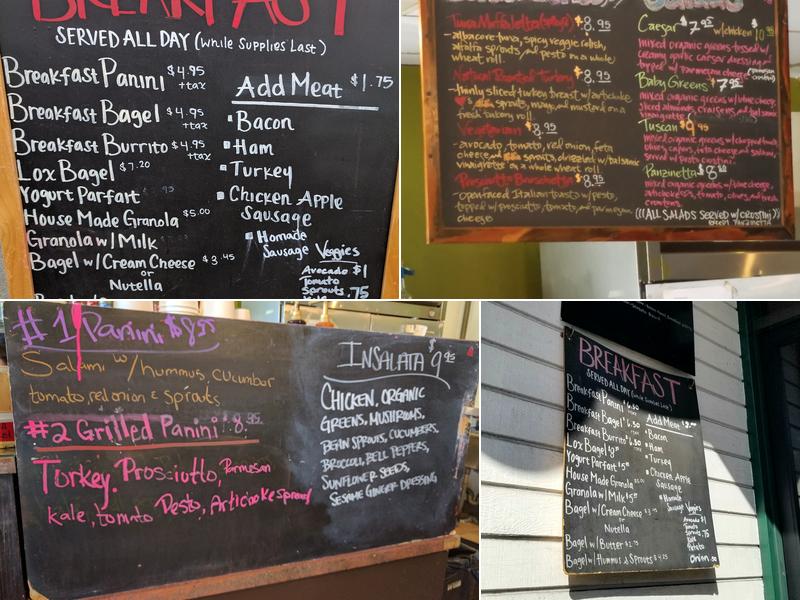 BREAKFAST
SERVED ALL DAY (While Supplies Last)
Breakfast Panini $4.95 +tax
Breakfast Bagel $4.95 +tax
Breakfast Burrito $4.95 +tax
Lox Bagel $7.20
Yogurt Parfart
House Made Granola $5.00
Granola w/Milk
Bagel w/Cream Cheese $3.45
or
Nutella
Add Meat $1.75
Bacon
Ham
Turkey
Chicken Apple
Sausage
Homade
Sausage
Veggies
Avocado $1
Tomato
Sprouts .75
Tuna Muffaletta (spicy) $8.95
-albacore tuna, spicy veggie relish,
alfalfa sprouts, and pesto on a whole
wheat roll.
Natural Roasted Turkey $8.95
-thinly sliced turkey breast w/artichoke
sprouts, mayo, and mustard on a
fresh bakery roll
Vegetarian $8.95
-avocado, tomato, red onion, feta
cheese and sprouts, drizzled w/balsamic
vinaigrette on a whole wheat roll.
Prosciutto Bruschetta $8.95
-openfaced Italian toast w/pesto,
topped w/prosciutto, tomato, and parmesan
cheese
Caesar $7.95 w/chicken $10
mixed organic greens tossed w/
creamy garlic caesar dressing and
topped w/parmesan cheese
Baby Greens $7.95
mixed organic greens w/blue cheese,
sliced almonds, craisens, and balsamic
vinaigrette
Tuscan $9.95
mixed organic greens w/chopped tomato,
olives, capers, feta cheese and salami,
served w/pesto crostini
Panzinetta $8
mixed organic greens w/blue cheese,
artichokes, tomato, olives, and bread
croutons
(((ALL SALADS SERVED W/CROSTINI)))
EXCEPT PANZINETTA
#1 Panini $8.95
Salami w/hummus, cucumber
tomato, red onion & sprouts
#2 Grilled Panini 8.95
Turkey, Prosciutto, Parmesan
kale, tomato Pesto, Artichoke spread
INSALATA $9.95
CHICKEN, ORGANIC
GREENS, MUSHROOMS,
BEAN SPROUTS, CUCUMBERS,
BROCCOLI, BELL PEPPERS,
SUNFLOWER SEEDS,
SESAME GINGER DRESSING
BREAKFAST
SERVED ALL DAY (While Supplies Last)
Breakfast Panini $6.50
Breakfast Bagel $6.50
Breakfast Burrito $6.50
Lox Bagel
Yogurt Parfart
House Made Granola
Granola w/Milk
Bagel w/Cream Cheese
or
Nutella
Bagel w/Butter $2.75
Bagel w/Hummus & Sprouts
Add Meat
Bacon
Ham
Turkey
Chicken Apple
Sausage
Homade
Sausage
Veggies
Avocado $1
Tomato
Sprouts .75
Kale
Potato
Onion .50